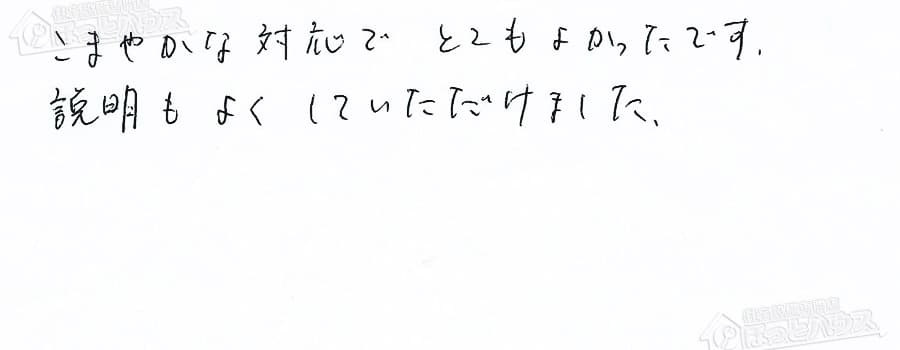 こまやかな対応で とてもよかったです.
説明も よく していただけました.
ほっとハウス